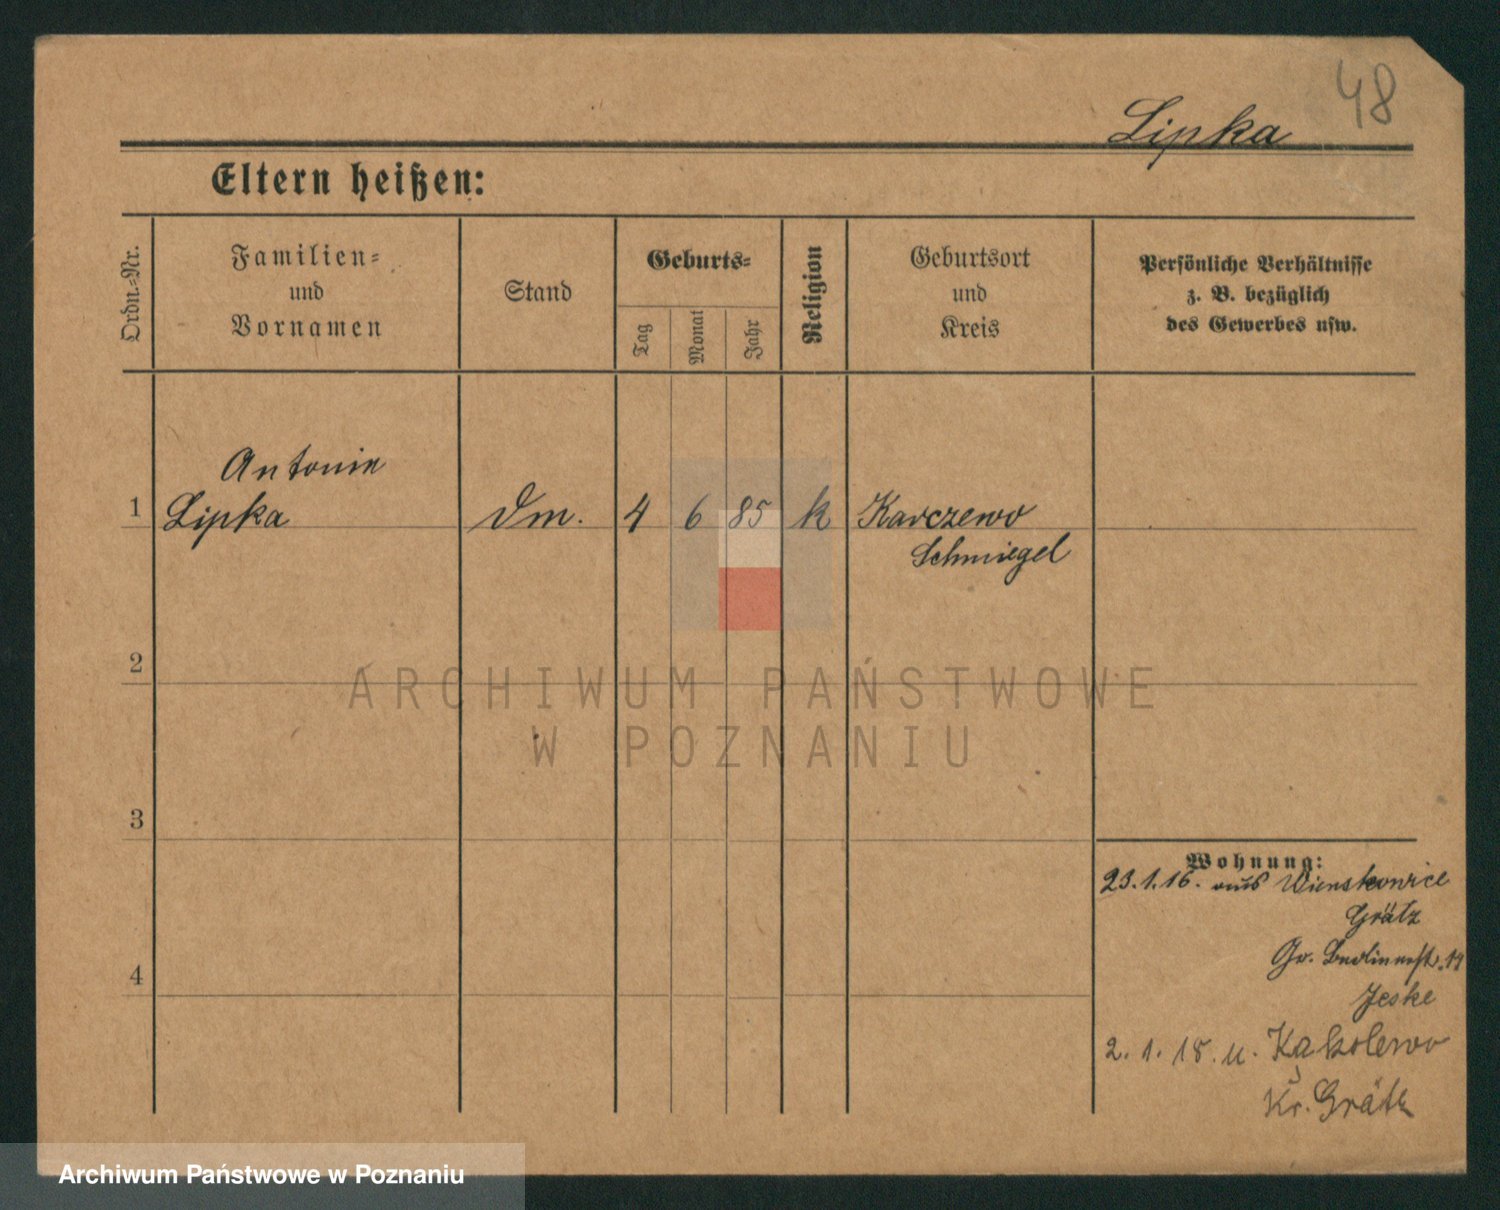 48
Lipka
Eltern heißen:
Ordn.-Nr.
Familien-
und
Vornamen
Stand
Geburts-
Tag
Monat
Jahr
Religion
Geburtsort
und
Kreis
Persönliche Verhältnisse
z. B. bezüglich
des Gewerbes usw.
Antonie
1 Lipka Dm. 4 6 85 k Karczewo
Schmiegel
2
ARCHIWUM PAŃSTWOWE
W POZNANIU
3
Wohnung:
23.1.16. aus
Grätz
Gr. Berlinerst. 14
4
Jeske
2. 1. 18. u. Kąkolewo
Kr. Grätz
Archiwum Państwowe w Poznaniu